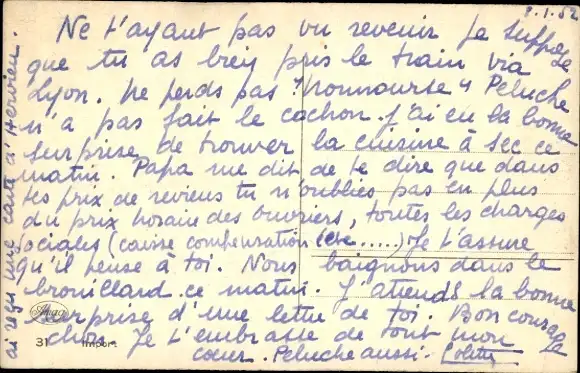 8.1.52
Ne t'ayant pas vu revenir je suppose
que tu as bien pris le train via
Lyon. Ne perds pas "Nounourse" Peluche
n'a pas fait le cochon. j'ai eu la bonne
surprise de trouver la cuisine à sec ce
matin. Papa me dit de te dire que dans
tes prix de reviens tu n'oublies pas en plus
du prix horaire des ouvriers, toutes les charges
sociales (caisse compensation etc.....) Je t'assure
qu'il pense à toi. Nous baignons dans le
brouillard ce matin. J'attends la bonne
surprise d'une lettre de toi. Bon courage
Je t'embrasse de tout mon
coeur. Peluche aussi. Colette
j'ai reçu une carte d'Hervieu.
31 Import